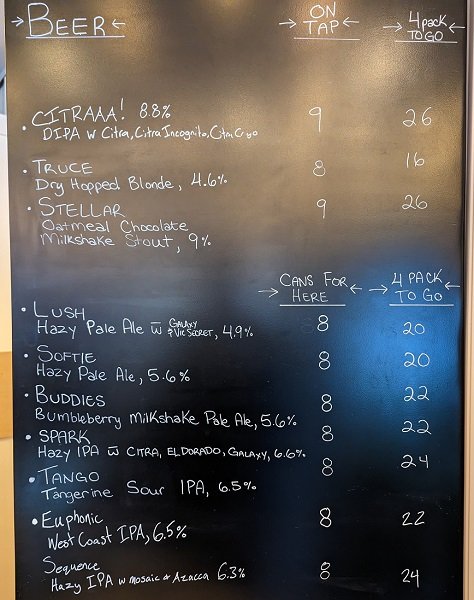 → BEER ←
→ ON TAP ←
→ 4 pack TO GO ←
• CITRAAA! 8.8% 9 26
DIPA w Citra, Citra Incognito, Citra Cryo
• TRUCE 8 16
Dry Hopped Blonde, 4.6%
• STELLAR 9 26
Oatmeal Chocolate
Milkshake Stout, 9%
→ CANS FOR HERE ←
→ 4 PACK TO GO ←
• LUSH 8 20
Hazy Pale Ale w GALAXY & VIC SECRET, 4.9%
• SOFTIE 8 20
Hazy Pale Ale, 5.6%
• BUDDIES 8 22
Bumbleberry Milkshake Pale Ale, 5.6%
• SPARK 8 22
HAZY IPA w CITRA, ELDORADO, GALAXY, 6.6%
• TANGO 8 24
Tangerine Sour IPA, 6.5%
• Euphonic 8 22
West Coast IPA, 6.5%
Sequence 8 24
Hazy IPA w mosaic & Azacca 6.3%